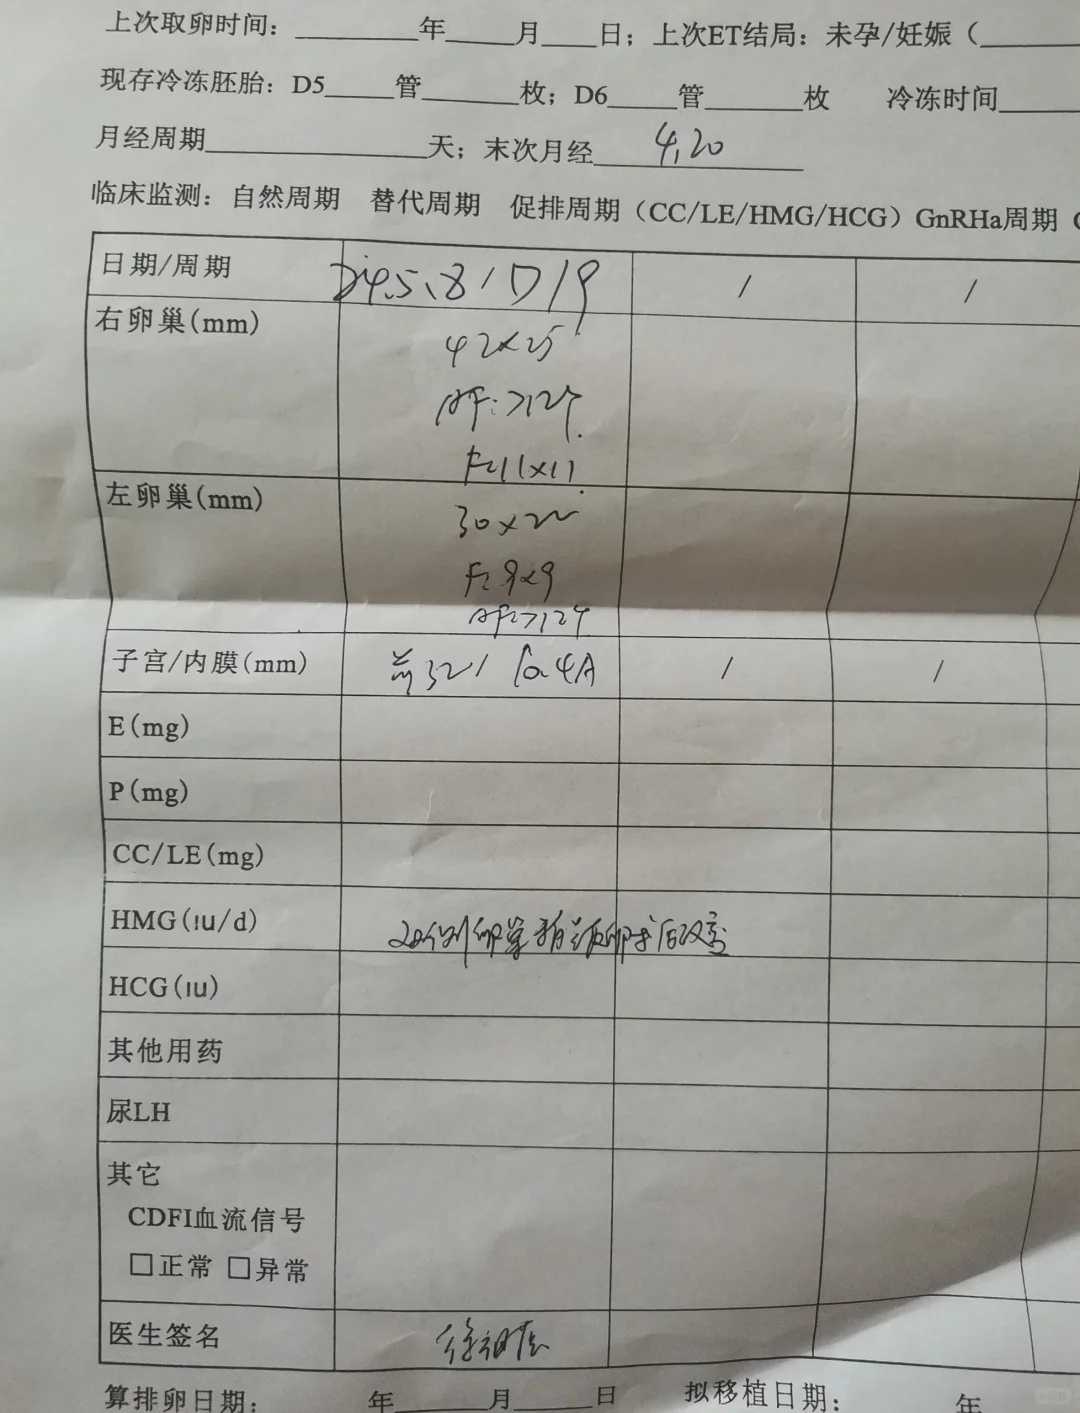 上次取卵时间：____年____月____日；上次ET结局：未孕/妊娠（
现存冷冻胚胎：D5____管____枚；D6____管____枚 冷冻时间____
月经周期____天；末次月经 4.20
临床监测：自然周期 替代周期 促排周期（CC/LE/HMG/HCG）GnRHa周期
日期/周期 24.5.8/D19 / /
右卵巢(mm)
42×25
AF:>12个
F:11×11
左卵巢(mm)
30×22
F:9×9
AF:>12个
子宫/内膜(mm) 前321 6.4A / /
E(mg)
P(mg)
CC/LE(mg)
HMG(iu/d)
双侧卵巢
HCG(iu)
其他用药
尿LH
其它
CDFI血流信号
□正常 □异常
医生签名
算排卵日期： 年____月____日 拟移植日期： 年